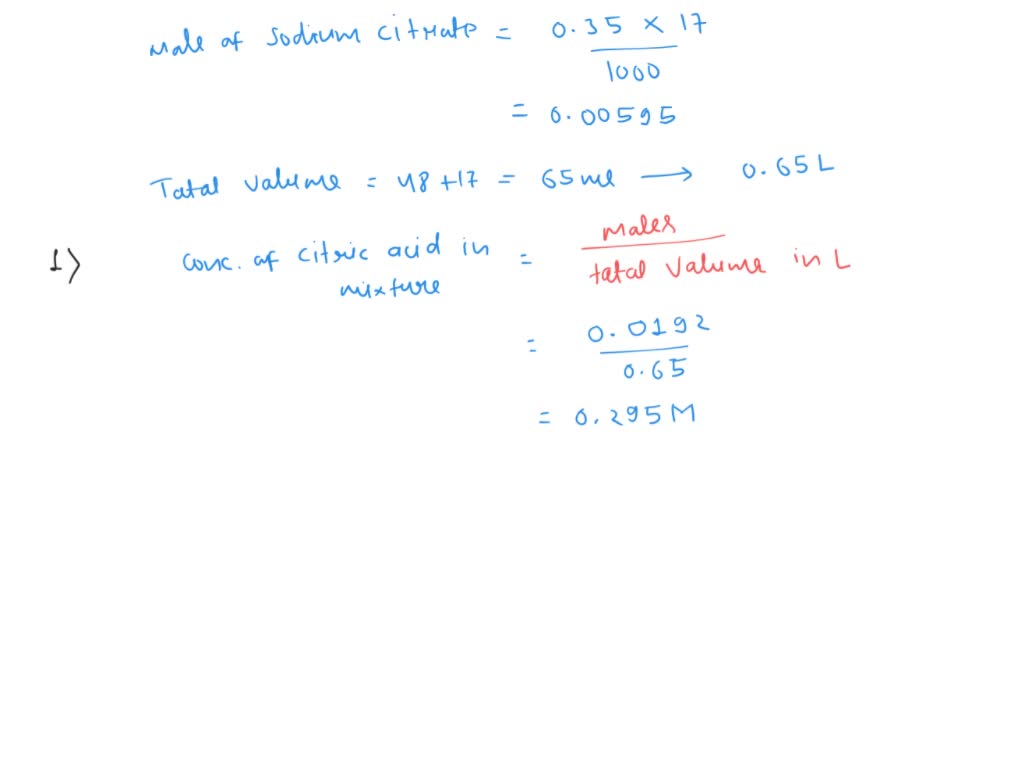 Mole of Sodium citrate = 0.35 × 17
1000
= 0.00595
Total volume = 48 + 17 = 65 ml → 0.65 L
1) Conc. of citric acid in mixture = moles
total volume in L
= 0.0192
0.65
= 0.295 M